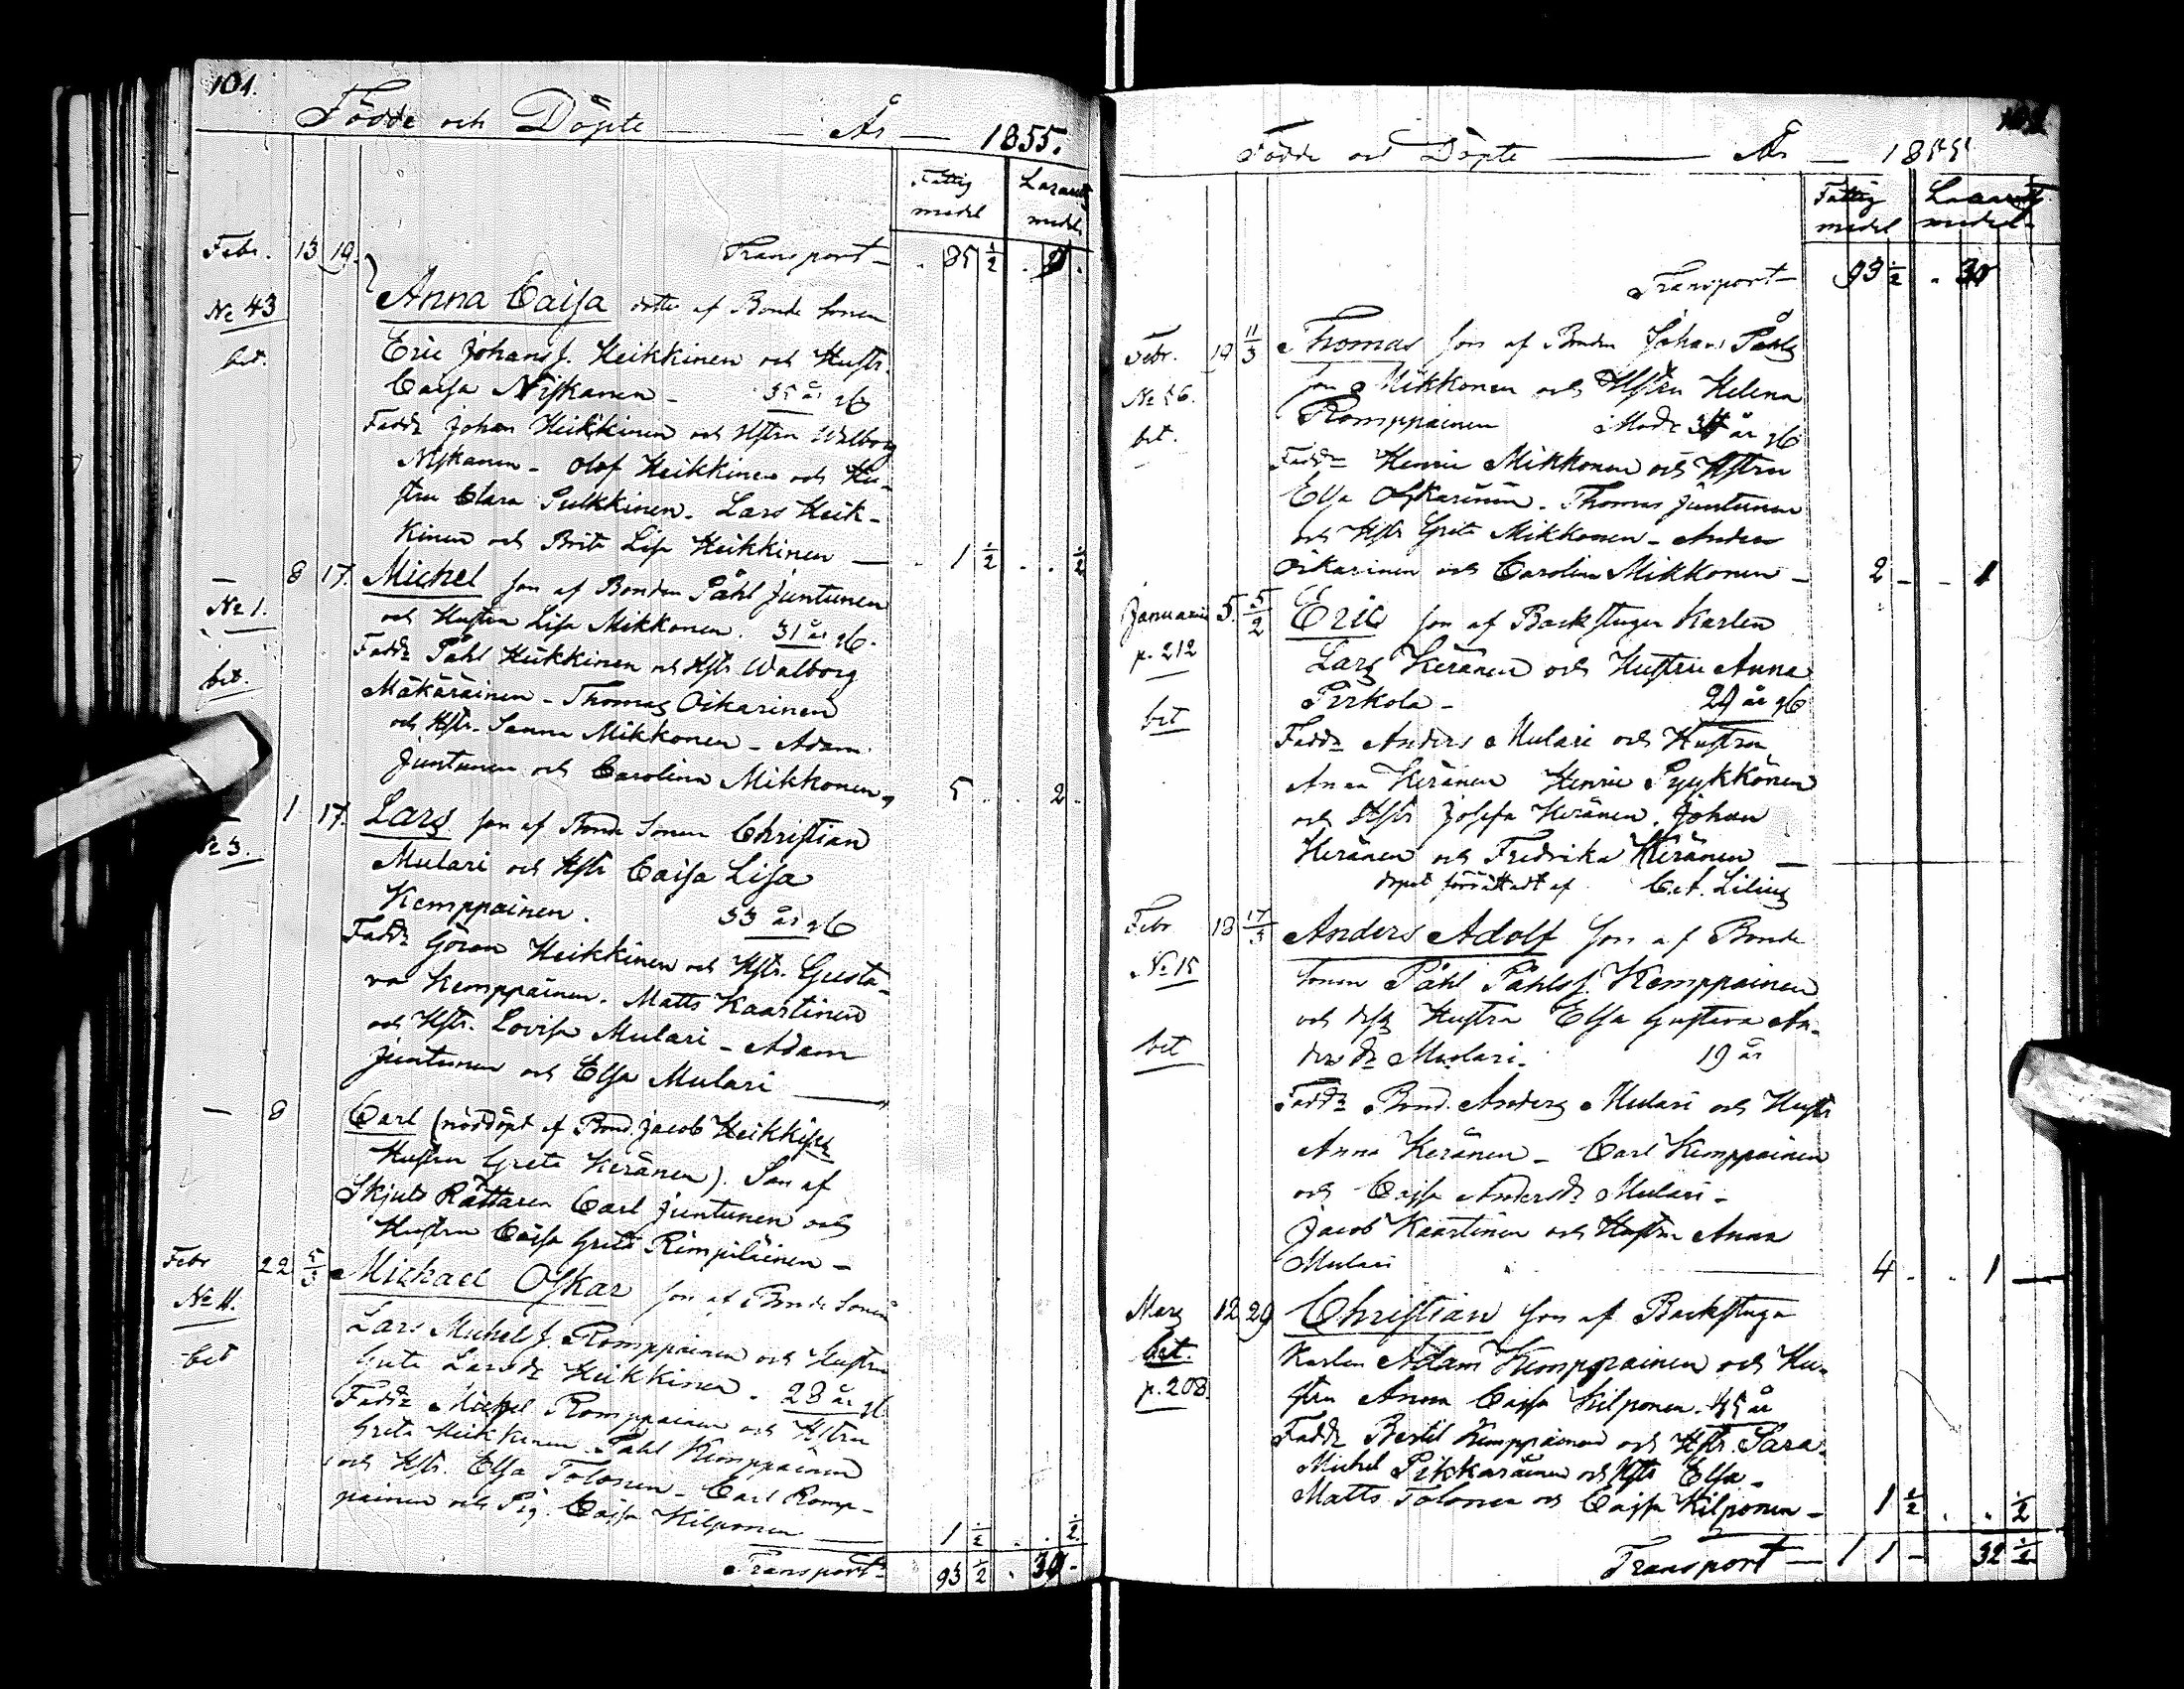 101.
Födde och Döpte — År — 1855.
Fattig medel Lazaretts medel
Febr. 13 19. Transport — 85 1/2
Anna Caisa dotter af Bonde Sonen
No 43
Eric Johanss. Heikkinen och Hustr.
bet.
Caisa Niskanen - 35 år gl
Faddr Johan Heikkinen och Hstru Walborg
Niskanen - Olof Heikkinen och Hu-
stru Clara Pulkkinen. Lars Heik-
kinen och Brita Lisa Heikkinen — 1 1/2 . . 1/2
— 8 17. Michel son af Bonden Påhl Juntunen
No 1.
och Hustru Lisa Mikkonen. 31 år gl.
Faddr Påhl Heikkinen och Hstr Walborg
bet.
Mäkäräinen - Thomas Oikarinen
och Hstr. Sanna Mikkonen - Adam
Juntunen och Carolina Mikkonen 5 . . 2 -
1 17. Lars son af Bonde Sonen Christian
No 3.
Mulari och Hstr Caisa Lisa
Kemppainen. 33 år gl
Faddr Göran Heikkinen och Hstr. Gusta-
va Kemppainen. Matts Kaartinen
och Hstr. Lovisa Mulari - Adam
Juntunen och Elsa Mulari —
— 8 Carl (nöddöpt af Bond. Jacob Heikkis
Hustru Greta Keränen). Son af
Skjuts Rättaren Carl Juntunen och
Hustru Caisa Greta Rimpiläinen -
Febr 22 5/3 Michael Oskar son af Bonde Sonen
No 11.
Lars Michels s. Romppainen och Hustru
bet
Greta Larsdr Heikkinen. 28 år gl
Faddr Michel Romppainen och Hstru
Greta Heikkinen. Påhl Kemppainen
och Hstr. Elsa Tolonen - Carl Romp-
painen och Pig. Caisa Kilponen — 1 1/2 . . 1/2
Transport 93 1/2 . 30 -
102
Födde och Döpte — År — 1855
Fattig medel Lazaretts medel
Transport — 93 1/2 . 30
Febr. 19 11/3 Thomas son af Bonden Johan Påhls
son Mikkonen och Hstru Helena
No 56.
Romppainen Modr år gl
bet.
Faddr Henric Mikkonen och Hstru
Elsa Oikarinen. Thomas Juntunen
och Hstr Greta Mikkonen - Anders
Oikarinen och Carolina Mikkonen - 2 - - 1
Januarii 5. 5/2 Eric son af Backstugu Karlen
p. 212
Lars Keränen och Hustru Anna
Pirkola - 29 år gl
bet
Faddr Anders Mulari och Hustru
Anna Keränen Henric Pyykkönen
och Hstr Josefa Keränen. Johan
Keränen och Fredrika Keränen —
dopet förrättadt af C. A. Lilius
Febr 18 17/3 Anders Adolf son af Bonde
No 15
Sonen Påhl Påhls s. Kemppainen
och dess Hustru Elsa Gustava An-
bet
ders dr Mulari. 19 år
Faddr Bond. Anders Mulari och Hustr
Anna Keränen - Carl Kemppainen
och Cajsa Andersdr Mulari -
Jacob Kaartinen och Hustru Anna
Mulari — 4 - . 1 —
Mars 12 29 Christian son af Backstugu
bet.
Karlen Adam Kemppainen och Hu-
p. 208.
stru Anna Cajsa Kilponen. 45 år
Faddr Bertil Kemppainen och Hstr. Sara.
Michel Pikkarainen och Hstr Elsa -
Matts Tolonen och Cajsa Kilponen - 1 1/2 . . 1/2
Transport — 1 1 - 32 1/2